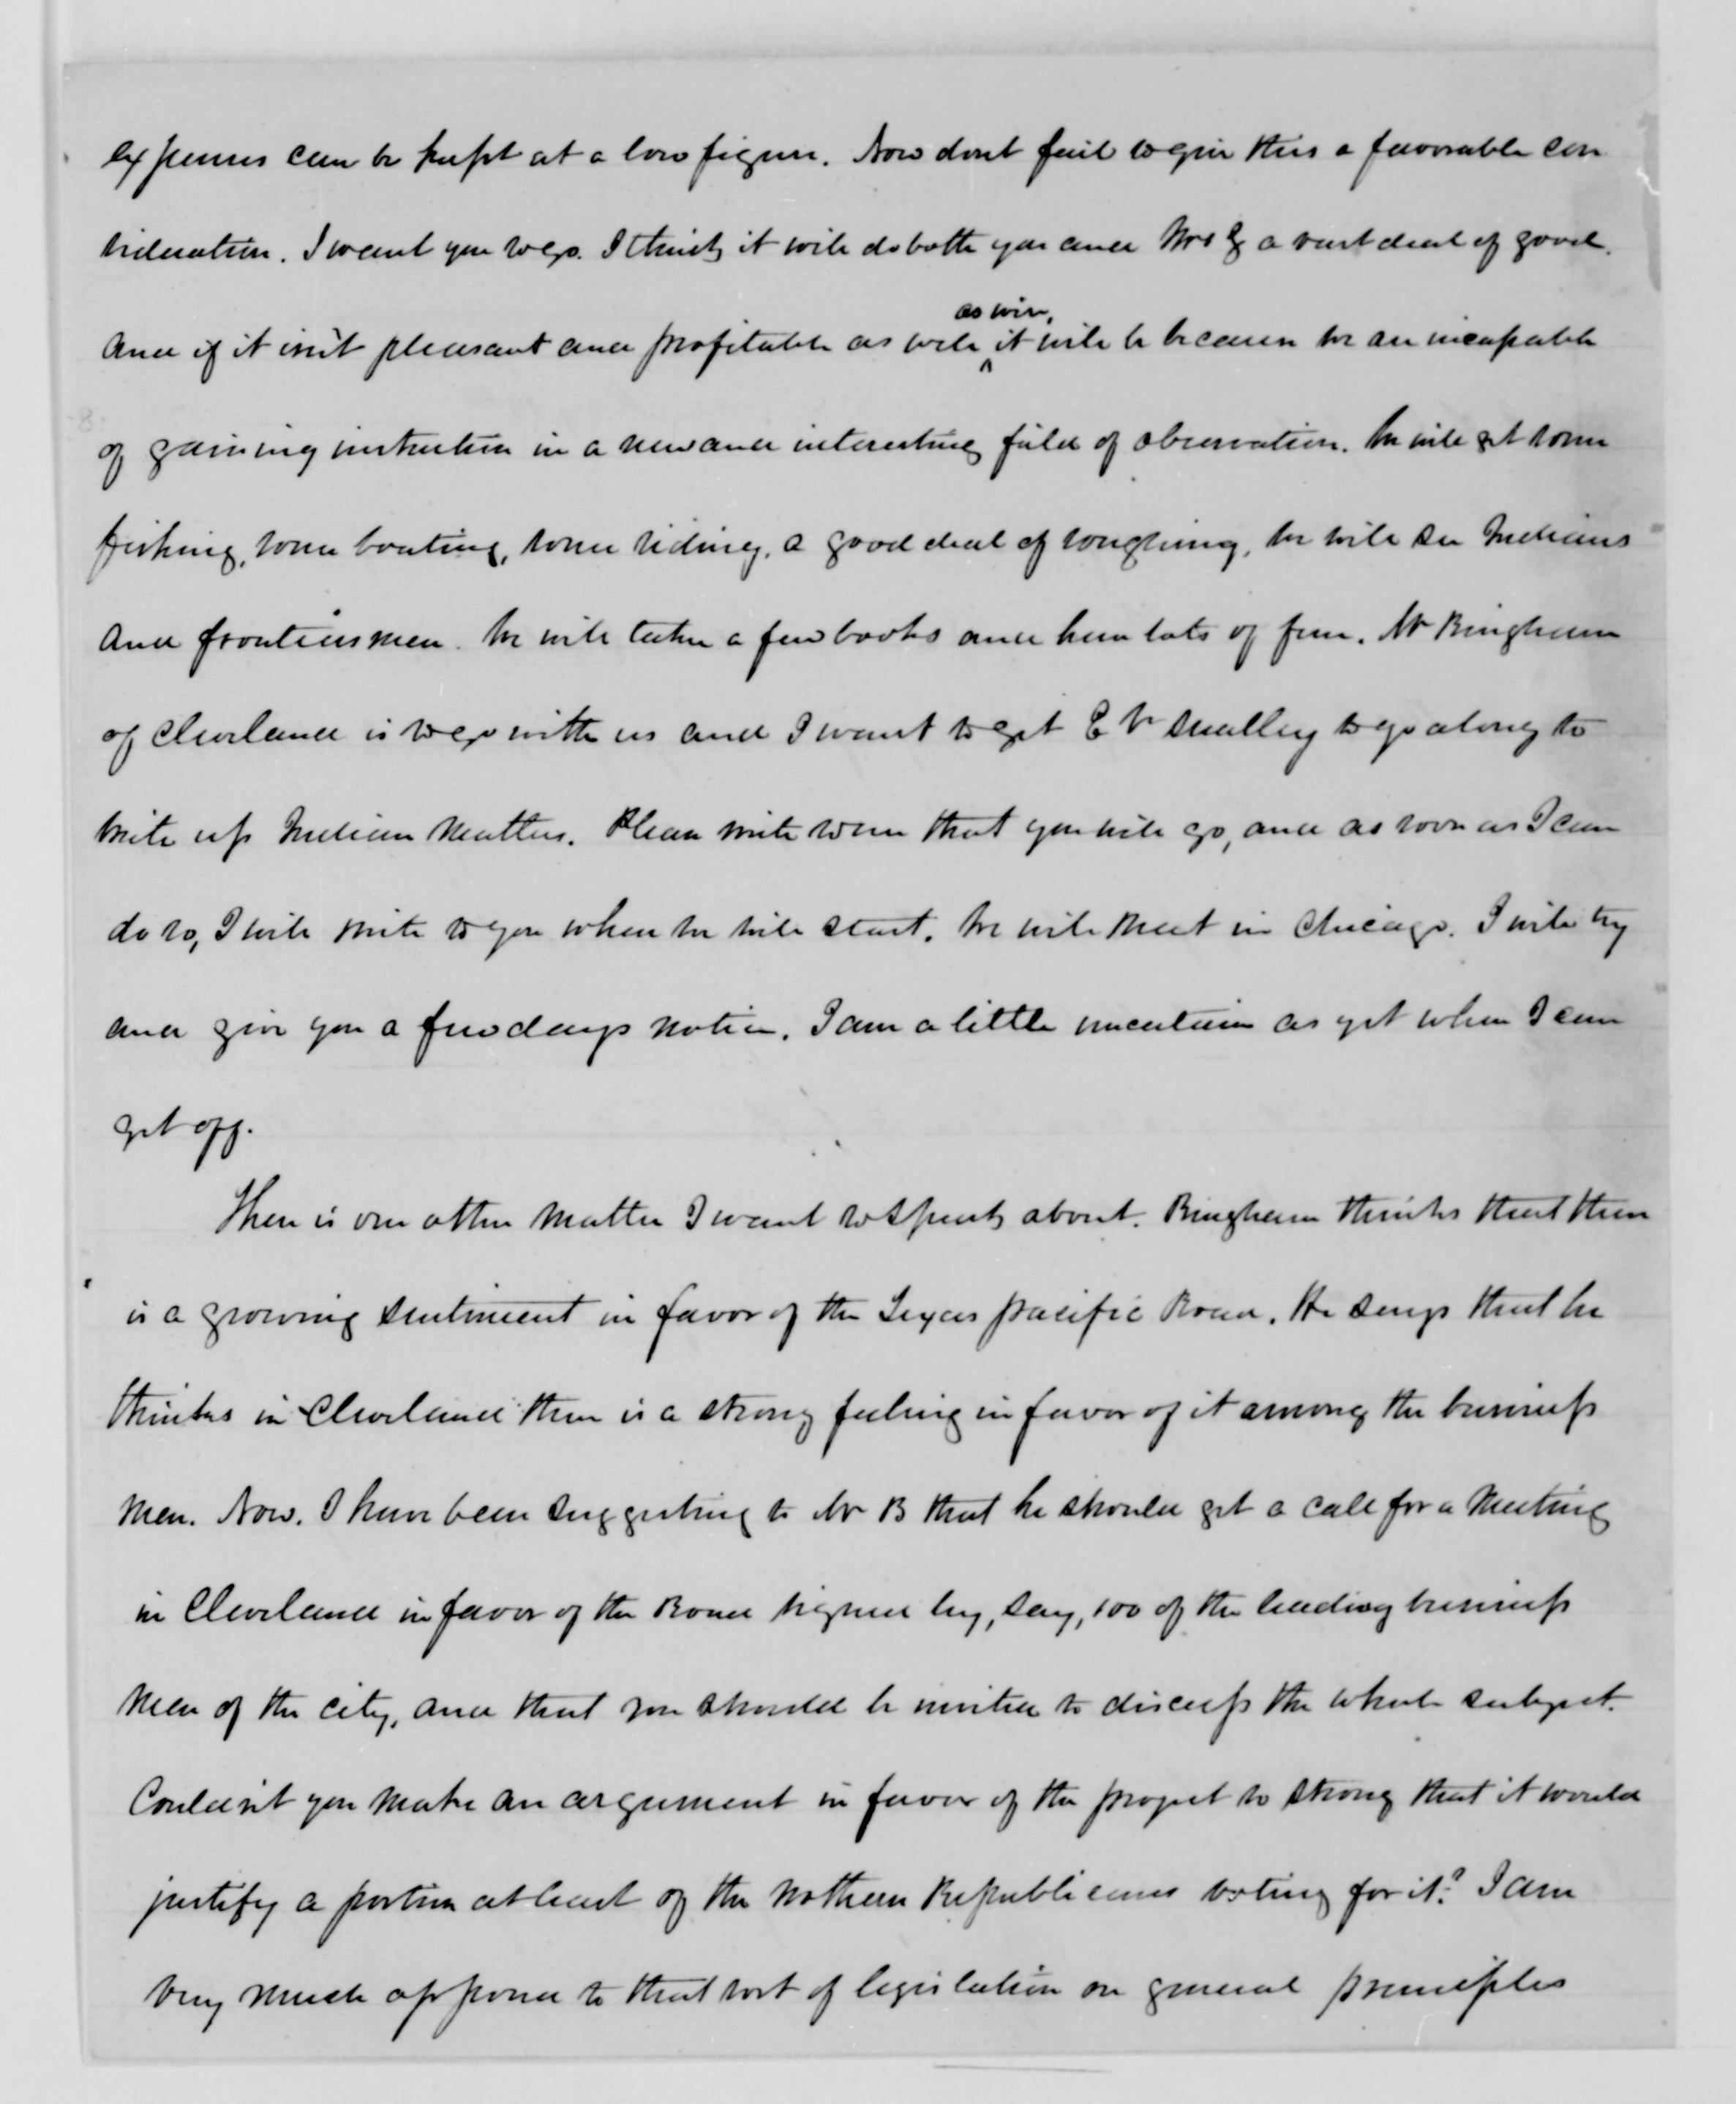 expenses can be kept at a low figure. Now dont fail to give this a favorable con
sideration. I want you to go. I think it will do both you and Mrs G a vast deal of good.
And if it isnt pleasant and profitable as well as wise, it will be because we are incapable
of gaining instruction in a new and interesting field of observation. We will get some
fishing, some boating, some riding, a good deal of roughing, we will see Indians
and frontiersmen. We will take a few books and have lots of fun. Mr Bingham
of Cleveland is to go with us and I want to get E V Smalley to go along to
write up Indian matters. Please write soon that you will go, and as soon as I can
do so, I will write to you when we will start. We will meet in Chicago. I will try
and give you a few days notice. I am a little uncertain as yet when I can
get off.
There is one other matter I want to speak about. Bingham thinks that there
is a growing sentiment in favor of the Texas pacific Road. He says that he
thinks in Cleveland there is a strong feeling in favor of it among the business
men. Now. I have been suggesting to Mr B that he should get a call for a meeting
in Cleveland in favor of the Road signed by, say, 100 of the leading business
men of the city, and that you should be invited to discuss the whole subject.
Couldnt you make an argument in favor of the project so strong that it would
justify a portion at least of the Northern Republicans voting for it? I am
very much opposed to that sort of legislation on general principles